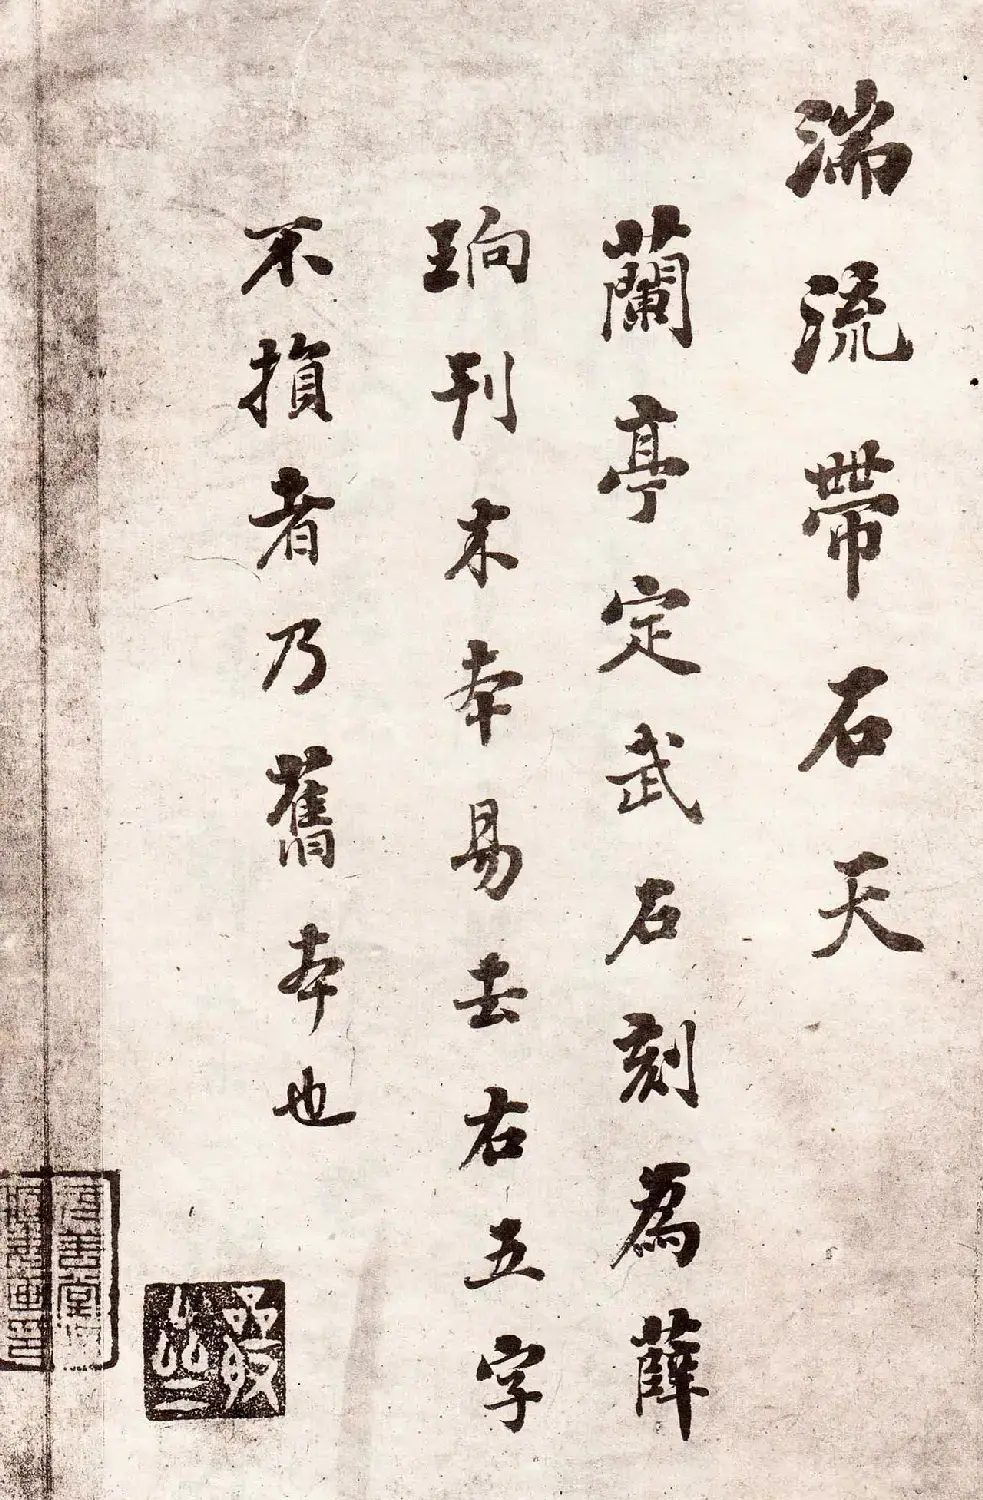 湍流帶石天
蘭亭定武石刻為薛
珦刊木本易去右五字
不損者乃舊本也